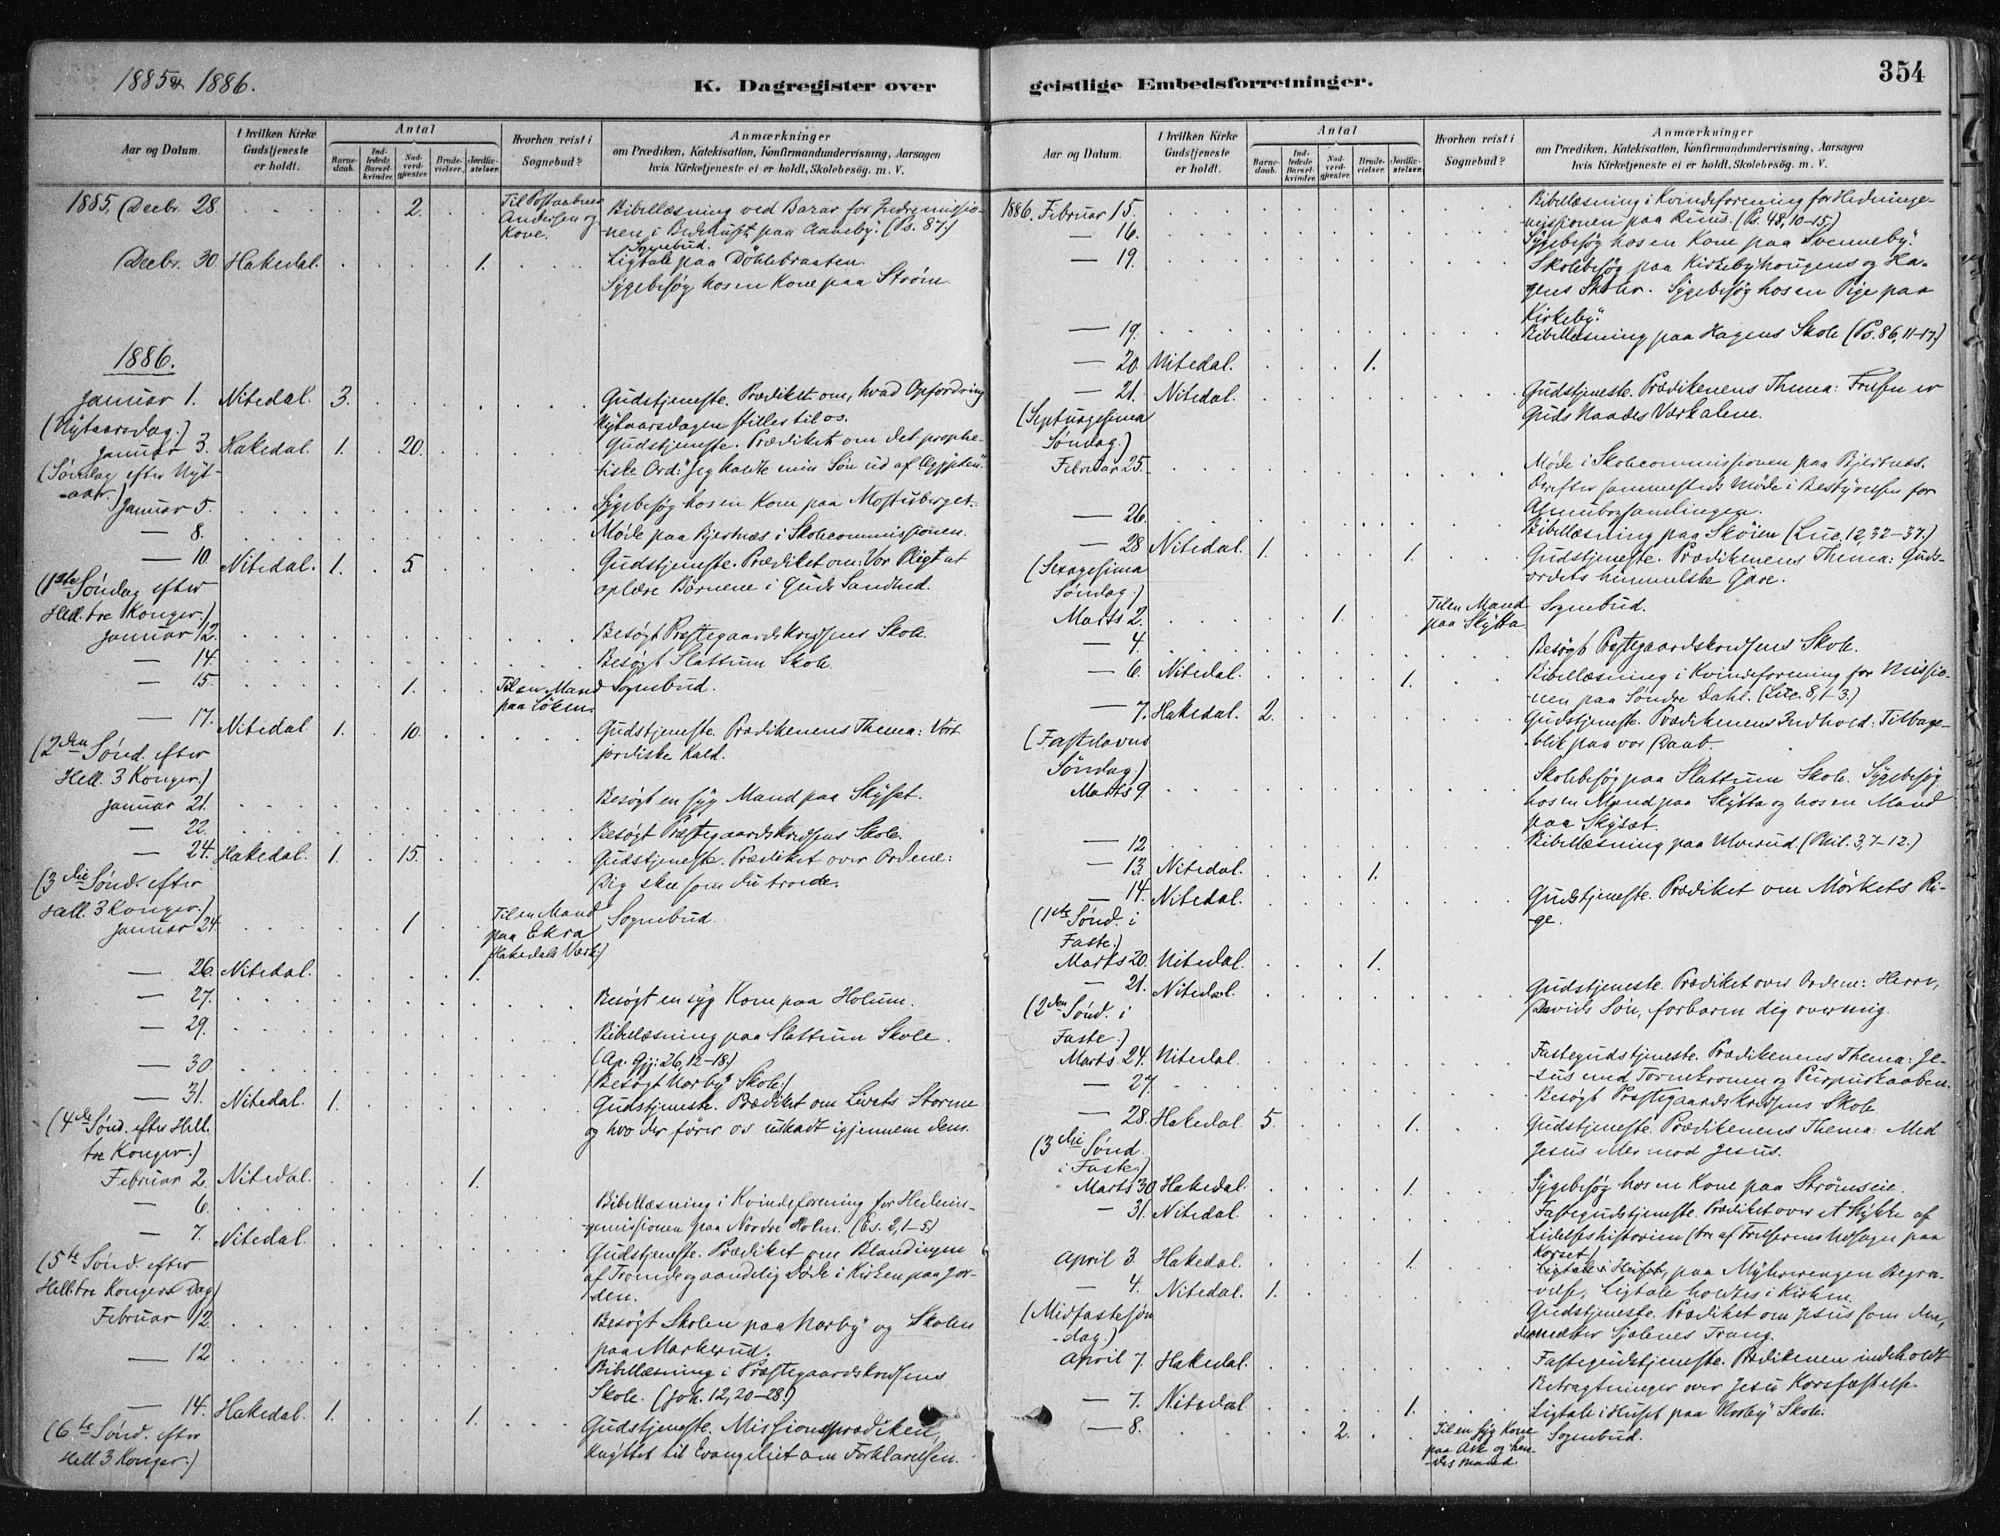 1885 & 1886.
K. Dagregister over
Aar og Datum.
I hvilken Kirke Gudstjeneste er holdt.
Antal
Barne-daab.
Ind-ledede Barsel-kvinder.
Nad-verd-gjester.
Brude-vielser.
Jordfæ-stelser.
Hvorhen reist i Sognebud?
Anmærkninger
om Prædiken, Katekisation, Konfirmandundervisning, Aarsagen
hvis Kirketjeneste ei er holdt, Skolebesøg. m. V.
1885, Decbr. 28. 2. Til Postaabner Andersen og Kone. Bibellæsning ved Bazar for Indremissio-
nen i Bedehuset paa Aaneby. (Ps. 87.)
Sognebud.
Decbr. 30 Hakedal. 1. Ligtale paa Döhlebraaten.
Sygebesøg hos en Kone paa Strøm.
1886.
Januar 1. Nitedal. 3. Gudstjeneste. Prædiket om, hvad Opfordring
(Nytaarsdag.) Nytaarsdagen stiller til os.
Januar 3. Hakedal. 1. 20. Gudstjeneste. Prædiket om det prophe-
(Søndag efter Nyt- tiske Ord: "Jeg kaldte min Søn ud af Ægypten".
-aar.) Januar 5. Sygebesøg hos en Kone paa Mostuberget.
— 8. Møde paa Bjertnæs i Skolecommissionen.
— 10. Nitedal. 1. 5. Gudstjeneste. Prædiket om: Vor Pligt at
(1ste Søndag efter oplære Børnene i Guds Sandhed.
Hell. tre Konger.)
Januar 12. Besøgt Præstegaardskredsens Skole.
— 14. Besøgt Slattum Skole.
— 15. 1. Til en Mand paa Løken. Sognebud.
— 17. Nitedal. 1. 10. Gudstjeneste. Prædikenens Thema: Vort
(2den Sønd. efter jordiske Kald.
Hell. 3 Konger.)
Januar 21. Besøgt en syg Mand paa Skyset.
— 22. Besøgt Præstegaardskredsens Skole.
— 24. Hakedal. 1. 15. Gudstjeneste. Prædiket over Ordene:
(3die Sønd. efter Dig ske som du troede.
Hell. 3 Konger.)
Januar 24. 1 Til en Mand paa Ekra (Hakedals Værk.) Sognebud.
— 26. Nitedal. 1
— 27. Besøgt en syg Kone paa Holum.
— 29. Bibellæsning paa Slattum Skole.
(Ap. Gj: 26, 12–18)
— 30. (Besøgt Nørby Skole.)
— 31. Nitedal. 1. Gudstjeneste. Prædiket om Livets Storme
(4de Sønd. efter Hell. og hvo der fører os uskadt igjennem dem.
tre Konger.)
Februar 2. Nitedal. 1.
— 6. Bibellæsning i Kvindeforening for Hednin-
gemissionen paa Nordre Holm. (Es. 2, 1–5)
— 7. Nitedal. Gudstjeneste. Prædiket om Blandingen
(5te Sønd. efter af Troende og aandelig Døde i Kirken paa Jor-
Hell. tre Kongers Dag) den.
Februar 12. Besøgt Skolen paa Nørby og Skolen
paa Markerud.
— 12 Bibellæsning i Præstegaardskredsens
Skole. (Joh. 12, 20–28.)
— 14. Hakedal. 1. 1. Gudstjeneste. Missionsprædiken,
(6te Sønd. efter knyttet til Evangeliet om Forklarelsen.
Hell 3 Konger.)
geistlige Embedsforretninger.
354
Aar og Datum.
I hvilken Kirke Gudstjeneste er holdt.
Antal
Barne-daab.
Ind-ledede Barsel-kvinder.
Nad-verd-gjester.
Brude-vielser.
Jordfæ-stelser.
Hvorhen reist i Sognebud?
Anmærkninger
om Prædiken, Katekisation, Konfirmandundervisning, Aarsagen
hvis Kirketjeneste ei er holdt, Skolebesøg. m. V.
1886. Februar 15. Bibellæsning i Kvindeforening for Hedninge-
missionen paa Ruud. (Ps. 48, 10–15.)
— 16. Sygebesøg hos en Kone paa Svenneby.
— 19. Skolebesøg paa Kirkebyhougens og Ha-
gens Skoler. Sygebesøg hos en Pige paa
Kirkeby.
— 19. Bibellæsning paa Hagens Skole (Ps. 86, 11–17)
— 20 Nitedal. 1.
— 21. Nitedal. Gudstjeneste. Prædikenens Thema: Frelsen er
(Septuagesima Guds Naades Værk alene.
Søndag.)
Februar 25. Møde i Skolecommissionen paa Bjertnæs.
Derefter sammesteds Møde i Bestyrelsen for
Almuebogsamlingen.
— 26. Bibellæsning paa Skøien (Luc. 12, 32–37.)
— 28 Nitedal. 1. 1. Gudstjeneste. Prædikenens Thema: Guds-
(Sexagesima ordets himmelske Gave.
Søndag.)
Marts 2. 1. Til en Mand paa Skytta. Sognebud.
— 4. Besøgt Præstegaardskredsens Skole.
— 6. Nitedal. 1. Bibellæsning i Kvindeforening for Missio-
nen paa Søndre Dahl. (Luc. 8, 1–3.)
— 7. Hakedal. 2. Gudstjeneste. Prædikenens Indhold: Tilbage-
(Fastelavns blik paa vor Daab.
Søndag)
Marts 9. Skolebesøg paa Slattum Skole. Sygebesøg
hos en Mand paa Skytta og hos en Mand
paa Skyset.
— 12 Bibellæsning paa Ulverud. (Phil. 3, 7–12.)
— 13. Nitedal. 1.
— 14. Nitedal. Gudstjeneste. Prædiket om Mørkets Ri-
(1ste Sønd. i ge.
Faste.)
Marts 20. Nitedal. 1.
— 21. Nitedal. Gudstjeneste. Prædiket over Ordene: Herre,
(2den Sønd. i Davids Søn, forbarm dig over mig.
Faste.)
Marts 24. Nitedal. Fastegudstjeneste. Prædikenens Thema: Je-
sus med Tornekronen og Purpurkaaben.
— 27. Besøgt Præstegaardskredsens Skole.
— 28. Hakedal. 5. 1. Gudstjeneste. Prædikenens Thema: Med
(3die Sønd Jesus eller mod Jesus.
i Faste.)
Marts 30 Hakedal. 1. Sygebesøg hos en Kone paa Strømseie.
— 31. Nitedal. Fastegudstjeneste. Prædiket over et Stykke af
Lidelseshistorien (tre af Frelserens Udsagn paa
Korset.)
April 3. Hakedal. 1. Ligtale i Huset, paa Myhrvengen Begra-
velse, Ligtale holdtes i Kirken.
— 4. Nitedal. 1. Gudstjeneste. Prædiket om Jesus som den,
(Midfastesøn- der mætter Sjælenes Trang.
-dag.)
April 7. Hakedal. Fastegudstjeneste. Prædikenen indeholdt
Betragtninger over Jesu Korsfæstelse.
— 7. Nitedal 1. Ligtale i Huset paa Nørby Skole.
— 8. 2. Til en syg Kone paa Aas og hen-des Mand. Sognebud.